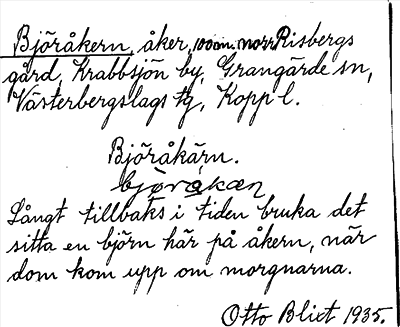 Björåkern, åker, 100 m. norr Risbergs
gård, Krabbsjön by, Grangärde sn,
Västerbergslags tg, Kopp l.
Björåkärn.
Långt tillbaks i tiden bruka det
sitta en björn här på åkern, när
dom kom upp om morgnarna.
Otto Blixt 1935.